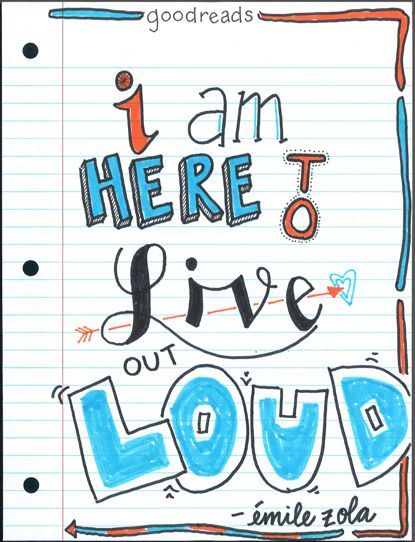 goodreads
i am
HERE TO
Live
OUT
LOUD
- émile zola